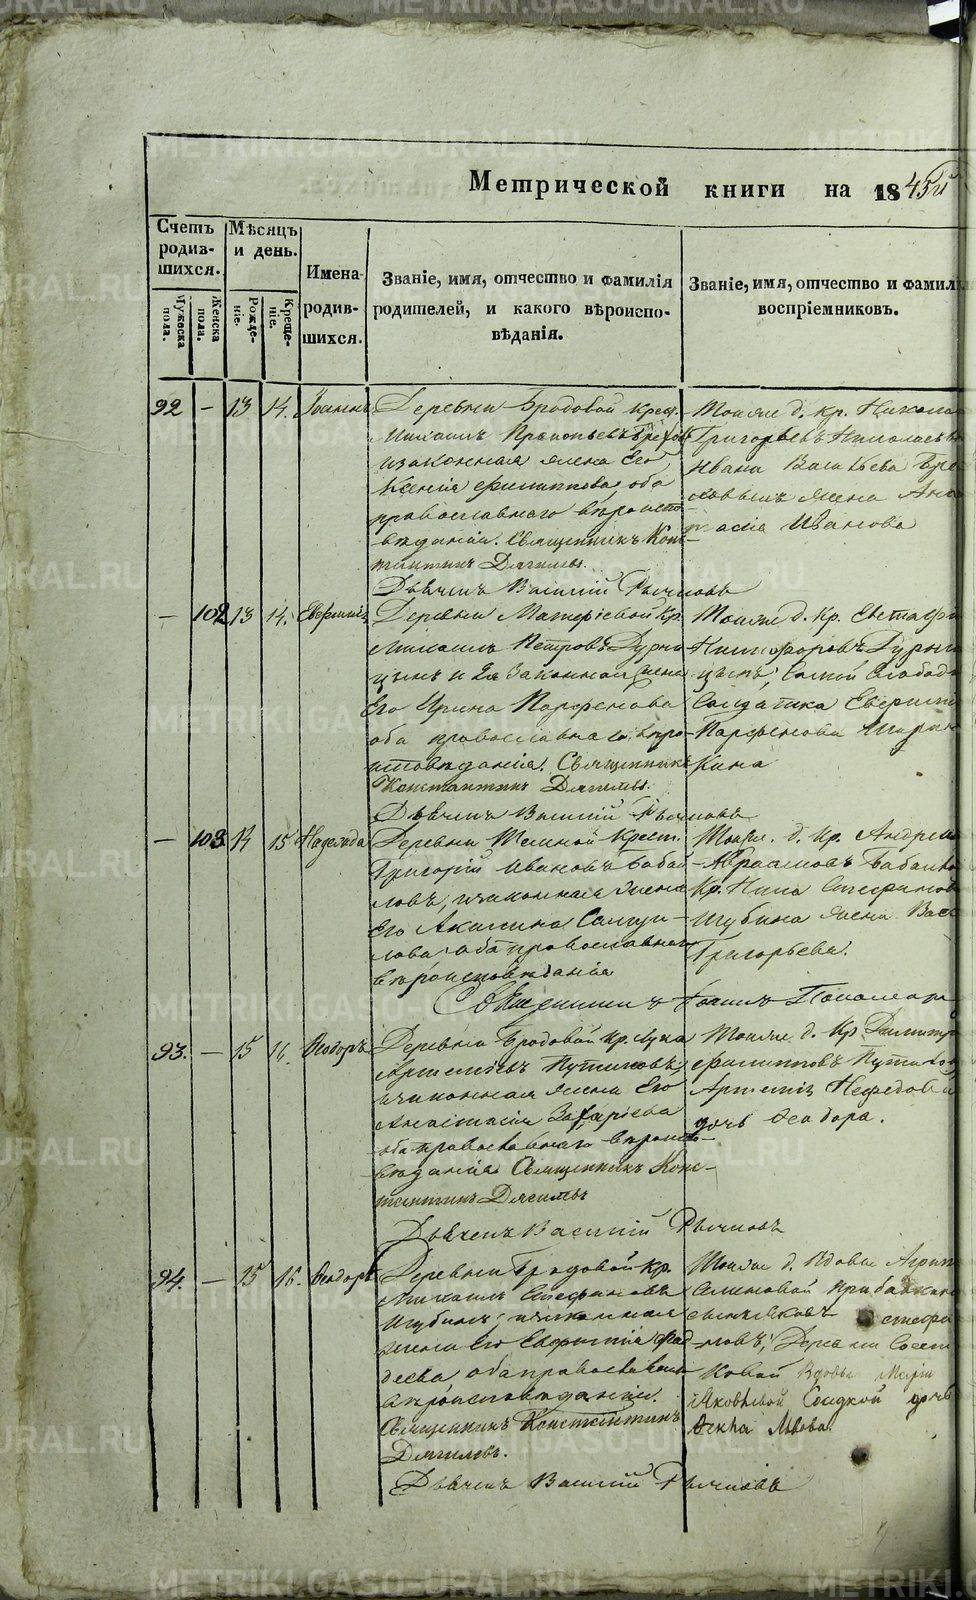 Метрической книги на 1845й
Счетъ родив-шихся.
Мѣсяцъ и день.
Мужеска пола.
Женска пола.
Рожде-ніе.
Креще-ніе.
Имена родив-шихся.
Званіе, имя, отчество и фамилія
родителей, и какого вѣроиспо-
вѣданія.
Званіе, имя, отчество и фамилі
воспріемниковъ.
92 — 13 14. Іоаннъ
Деревни Бродовой крест.
Михаилъ Прокопьевъ
и законная жена Его
Ксенія Филиппова оба
православнаго вѣроиспо-
вѣданія. Священникъ Конс-
тантинъ Дягилевъ.
Дьячекъ Василій Рычковъ
Тояже д. кр. Никола
Григорьевъ
Ивана Васильева
жена Анас
тасіа Иванова
— 102 13 14.
Деревни кр.
Михаилъ Петровъ Гурни
цынъ и 2я законная жена
Его Ирина Парфенова
оба православнаго вѣро
исповѣданія. Священникъ
Константинъ Дягилевъ.
Дьячекъ Василій Рычковъ
Тояже д. кр. Евстафі
Никифоровъ Гурни
цынъ, Слобод
Солдатка
Парфенова
кина
— 103 14 15 Надежда
Деревни крест.
Григорій Ивановъ Бабай
ловъ, и законная жена
Его Акилина Самуи-
лова оба православнаго
вѣроисповѣданія
Священникъ Іоаннъ Пономаре
Тояже д. кр. Андрей
Авраамовъ Бабайло
Кр. Стефанова
Шубина жена Васс
Григорьева.
93. — 15 16. Ѳеодоръ
Деревни Бродовой кр. Лука
Артемьевъ Путиловъ,
и законная жена Его
Анастасія Захаріева
оба православнаго вѣроис-
вѣданія Священникъ Конс-
тантинъ Дягилевъ
Дьячекъ Василій Рычковъ
Тояже д. Кр Димитр
Филипповъ Путилов
Артемія Нефедова
дочь Ѳеодора.
94. — 15 16. Ѳеодоръ
Деревни Бродовой кр.
Михаилъ Стефановъ
Шубинъ, и законная
жена Его Евфимія Фад
деева оба православнаго
вѣроисповѣданія.
Священникъ Константинъ
Дягилевъ.
Дьячекъ Василій Рычковъ
Тояже д. Вдовы Агрип
Семеновой
Стефа
новъ, Деревни Сосн
ковой Вдовы Маріи
Яковлевой дочь
Ѳекла Львова.
METRIKI.GASO-URAL.RU